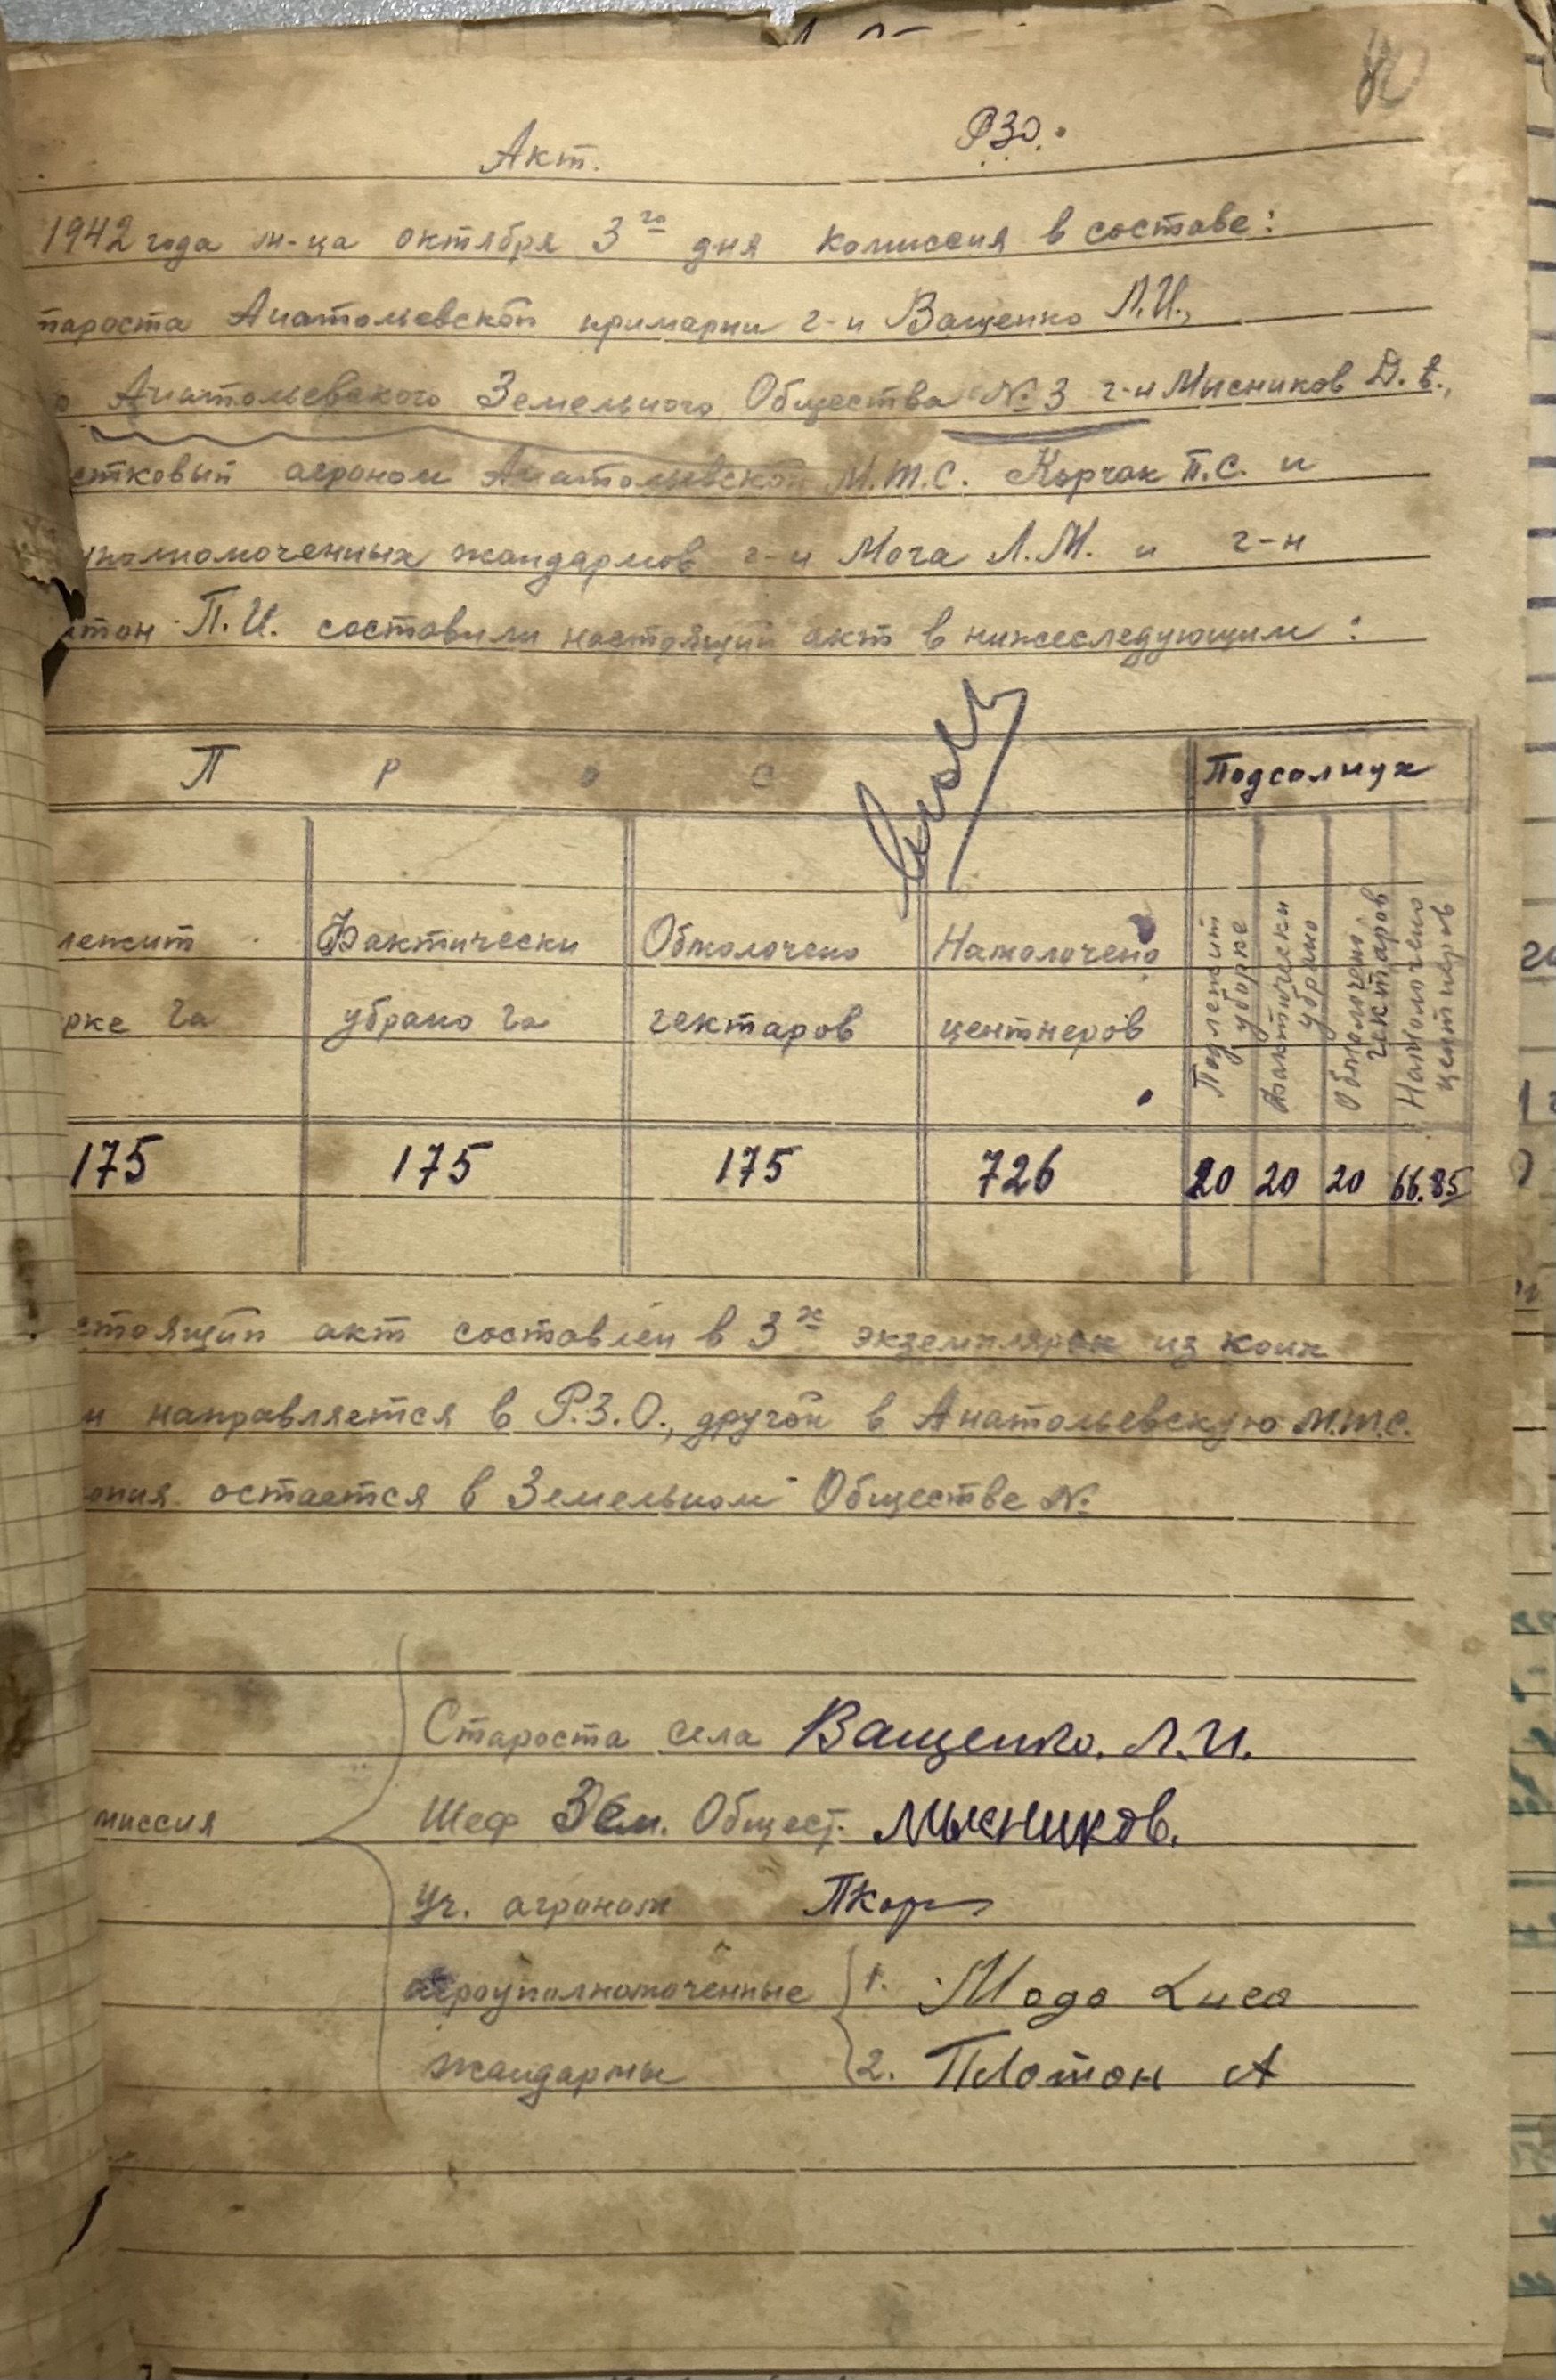 РЗО.
Акт.
1942 года м-ца октября 3го дня комиссия в составе:
тароста Анатольевской примарии г-н Ващенко Л.И.,
Анатольевского Земельного Общества № 3 г-н Мысников Д.Е.,
стковый агроном Анатольевской М.Т.С. Корчак П.С. и
уполномоченных жандармов г-н Мога Л.М. и г-н
тон П.И. составили настоящий акт в нижеследующим:
П Р О С Подсолнух
лежит Фактически Обмолочено Намолочено
рке га убрано га гектаров центнеров
Подлежит уборке
Фактически убрано
Обмолочено гектаров
Намолочено центнеров
175 175 175 726 20 20 20 66.85
стоящий акт составлен в 3х экземплярах из коих
н направляется в Р.З.О., другой в Анатольевскую М.Т.С.
опия остается в Земельном Обществе №
Староста села Ващенко. Л.И.
миссия Шеф Зем. Общест. Мысников.
Уч. агроном ПКор
агроуполномоченные 1. Мога
жандармы 2. Платон А